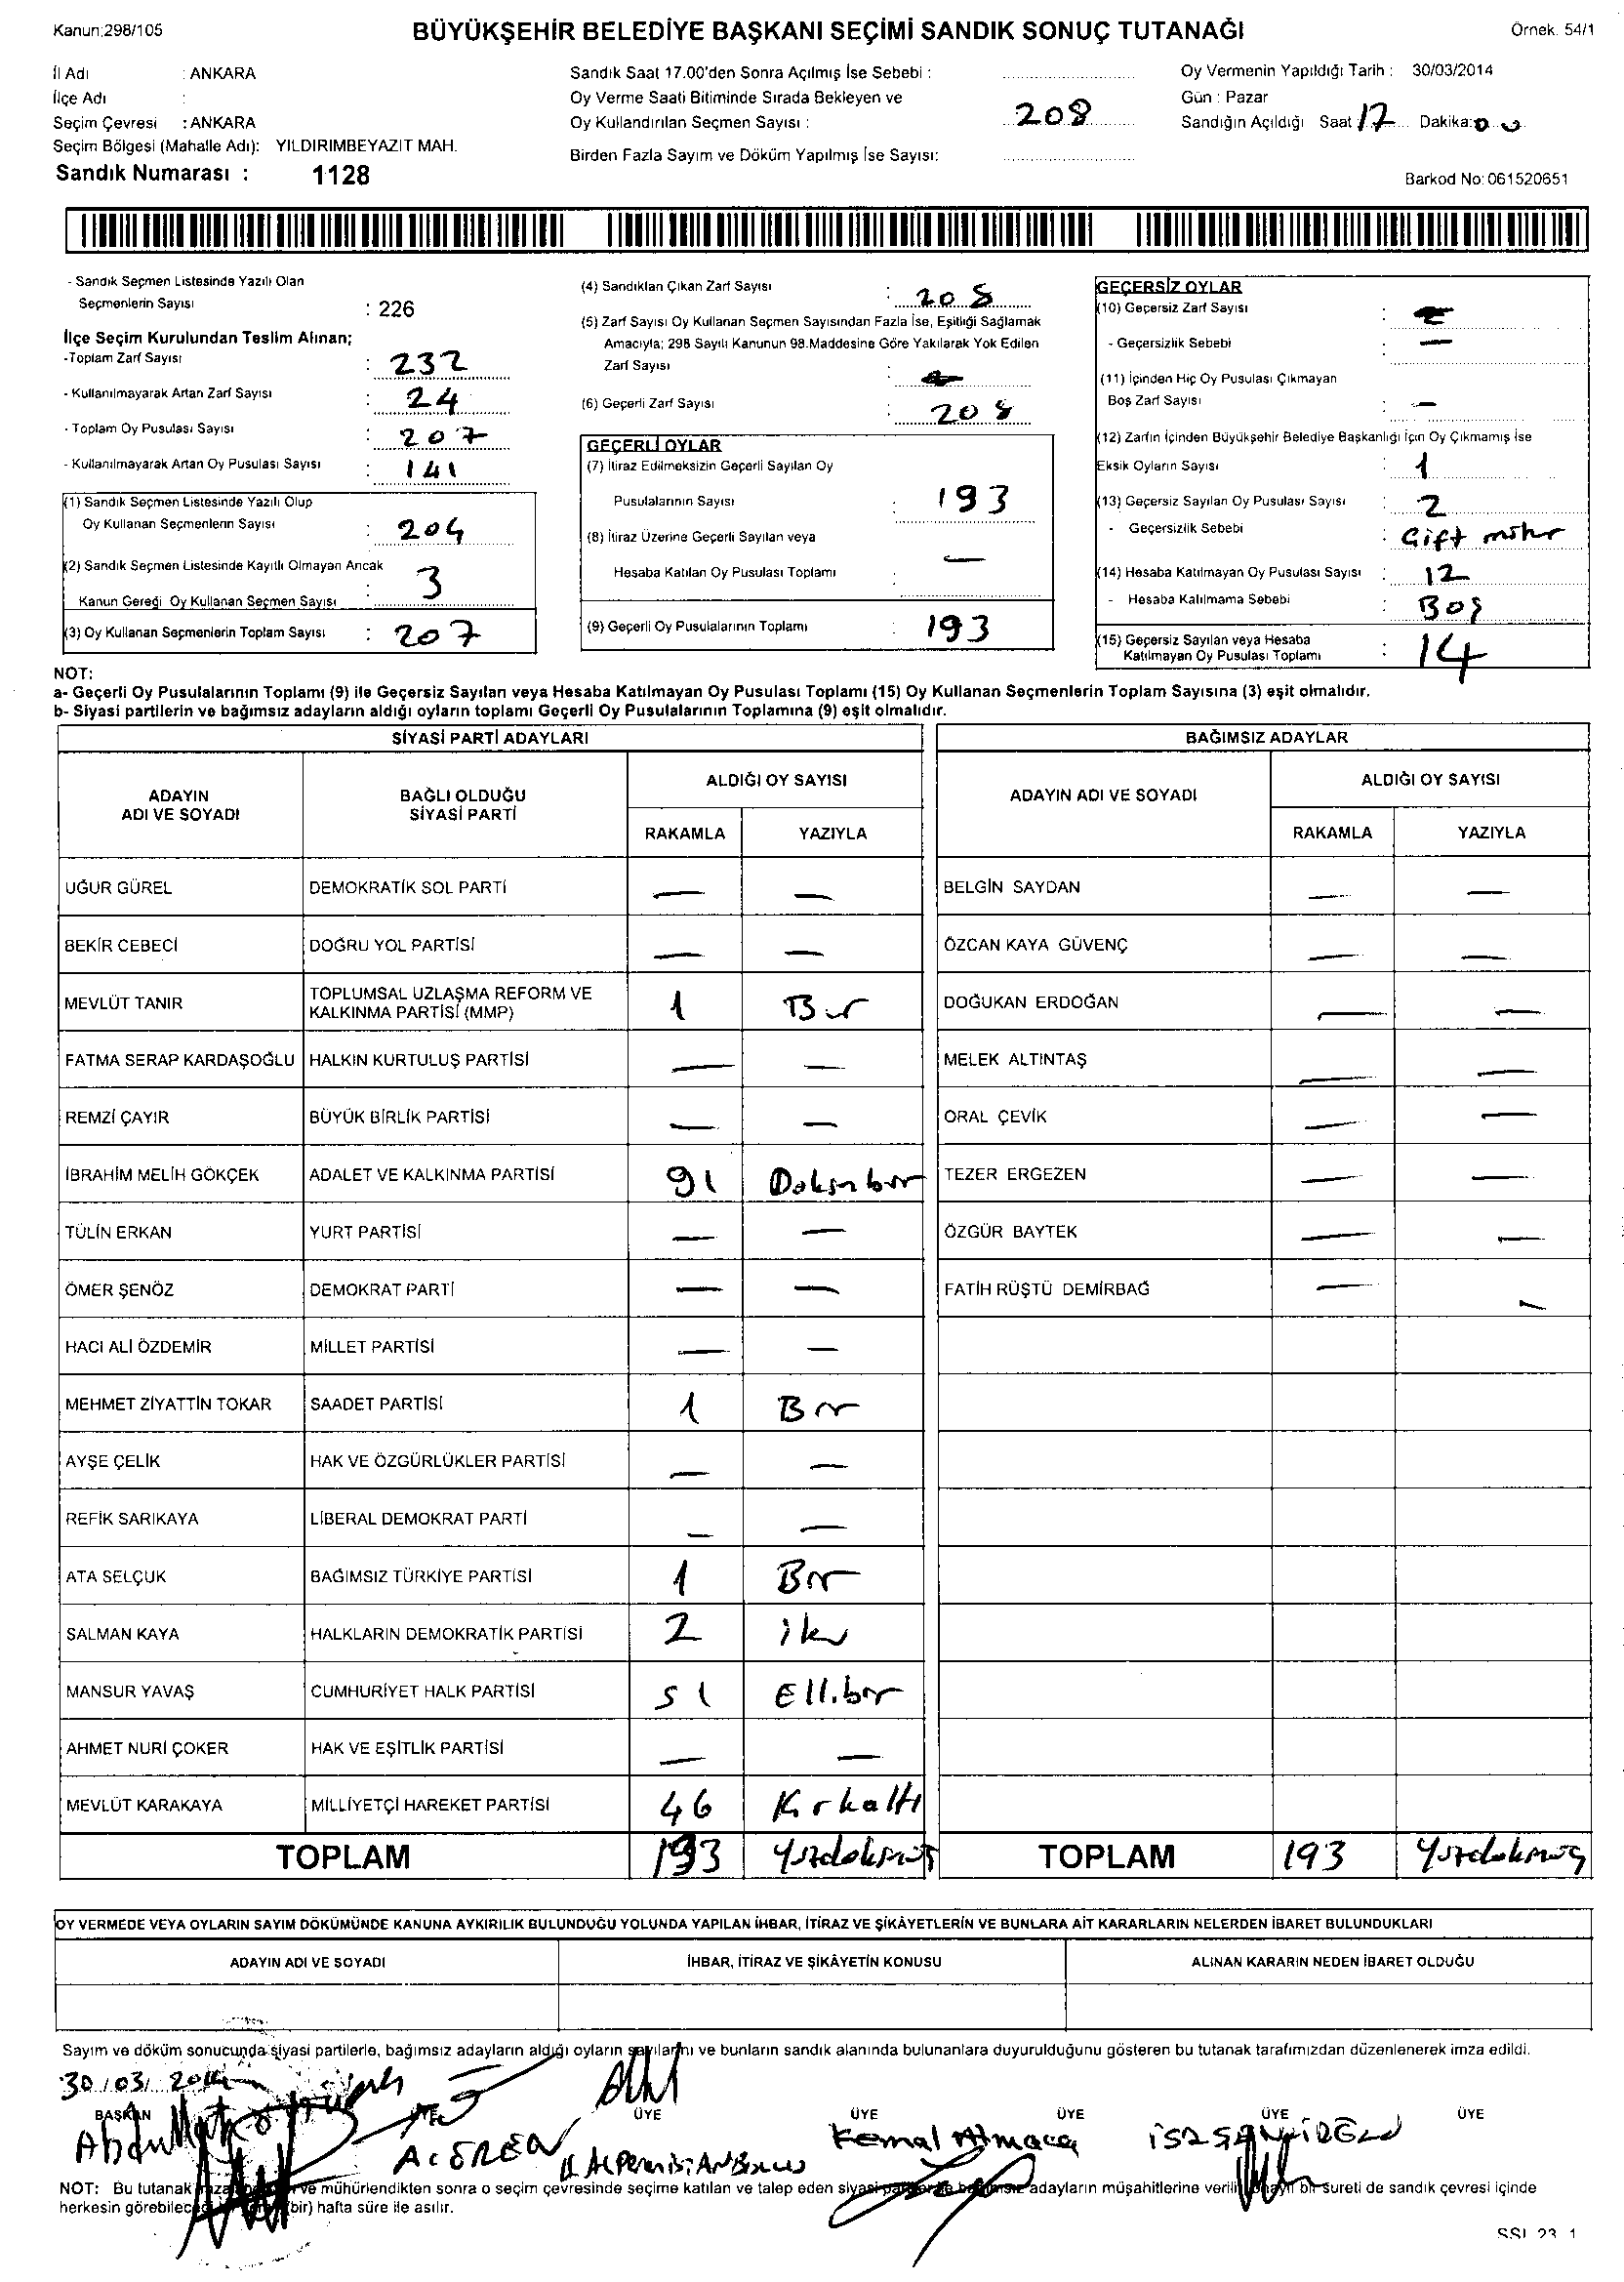 Kanun:298/105
BÜYÜKŞEHİR BELEDİYE BAŞKANI SEÇİMİ SANDIK SONUÇ TUTANAĞI
Örnek. 54/1
İl Adı : ANKARA
İlçe Adı :
Seçim Çevresi : ANKARA
Seçim Bölgesi (Mahalle Adı): YILDIRIMBEYAZIT MAH.
Sandık Numarası : 1128
Sandık Saat 17.00'den Sonra Açılmış İse Sebebi :
Oy Verme Saati Bitiminde Sırada Bekleyen ve
Oy Kullandırılan Seçmen Sayısı : 208
Birden Fazla Sayım ve Döküm Yapılmış İse Sayısı:
Oy Vermenin Yapıldığı Tarih : 30/03/2014
Gün : Pazar
Sandığın Açıldığı Saat 17 Dakika: 00
Barkod No: 061520651
- Sandık Seçmen Listesinde Yazılı Olan
Seçmenlerin Sayısı : 226
İlçe Seçim Kurulundan Teslim Alınan;
-Toplam Zarf Sayısı : 232
- Kullanılmayarak Artan Zarf Sayısı : 24
- Toplam Oy Pusulası Sayısı : 207
- Kullanılmayarak Artan Oy Pusulası Sayısı : 141
(1) Sandık Seçmen Listesinde Yazılı Olup
Oy Kullanan Seçmenlerin Sayısı : 204
(2) Sandık Seçmen Listesinde Kayıtlı Olmayan Ancak
Kanun Gereği Oy Kullanan Seçmen Sayısı : 3
(3) Oy Kullanan Seçmenlerin Toplam Sayısı : 207
(4) Sandıktan Çıkan Zarf Sayısı : 208
(5) Zarf Sayısı Oy Kullanan Seçmen Sayısından Fazla İse, Eşitliği Sağlamak
Amacıyla; 298 Sayılı Kanunun 98.Maddesine Göre Yakılarak Yok Edilen
Zarf Sayısı :
(6) Geçerli Zarf Sayısı : 208
GEÇERLİ OYLAR
(7) İtiraz Edilmeksizin Geçerli Sayılan Oy
Pusulalarının Sayısı : 193
(8) İtiraz Üzerine Geçerli Sayılan veya
Hesaba Katılan Oy Pusulası Toplamı : —
(9) Geçerli Oy Pusulalarının Toplamı : 193
GEÇERSİZ OYLAR
(10) Geçersiz Zarf Sayısı :
- Geçersizlik Sebebi : —
(11) İçinden Hiç Oy Pusulası Çıkmayan
Boş Zarf Sayısı : —
(12) Zarfın İçinden Büyükşehir Belediye Başkanlığı İçin Oy Çıkmamış İse
Eksik Oyların Sayısı : 1
(13) Geçersiz Sayılan Oy Pusulası Sayısı : 2
- Geçersizlik Sebebi : Çift mühr
(14) Hesaba Katılmayan Oy Pusulası Sayısı : 12
- Hesaba Katılmama Sebebi : Boş
(15) Geçersiz Sayılan veya Hesaba
Katılmayan Oy Pusulası Toplamı : 14
NOT:
a- Geçerli Oy Pusulalarının Toplamı (9) ile Geçersiz Sayılan veya Hesaba Katılmayan Oy Pusulası Toplamı (15) Oy Kullanan Seçmenlerin Toplam Sayısına (3) eşit olmalıdır.
b- Siyasi partilerin ve bağımsız adayların aldığı oyların toplamı Geçerli Oy Pusulalarının Toplamına (9) eşit olmalıdır.
SİYASİ PARTİ ADAYLARI
ADAYIN ADI VE SOYADI BAĞLI OLDUĞU SİYASİ PARTİ ALDIĞI OY SAYISI
RAKAMLA YAZIYLA
UĞUR GÜREL DEMOKRATİK SOL PARTİ — —
BEKİR CEBECİ DOĞRU YOL PARTİSİ — —
MEVLÜT TANIR TOPLUMSAL UZLAŞMA REFORM VE KALKINMA PARTİSİ (MMP) 1 Bir
FATMA SERAP KARDAŞOĞLU HALKIN KURTULUŞ PARTİSİ — —
REMZİ ÇAYIR BÜYÜK BİRLİK PARTİSİ — —
İBRAHİM MELİH GÖKÇEK ADALET VE KALKINMA PARTİSİ 91 Doksnbir
TÜLİN ERKAN YURT PARTİSİ — —
ÖMER ŞENÖZ DEMOKRAT PARTİ — —
HACI ALİ ÖZDEMİR MİLLET PARTİSİ — —
MEHMET ZİYATTİN TOKAR SAADET PARTİSİ 1 Bir
AYŞE ÇELİK HAK VE ÖZGÜRLÜKLER PARTİSİ — —
REFİK SARIKAYA LİBERAL DEMOKRAT PARTİ — —
ATA SELÇUK BAĞIMSIZ TÜRKİYE PARTİSİ 1 Bir
SALMAN KAYA HALKLARIN DEMOKRATİK PARTİSİ 2 iki
MANSUR YAVAŞ CUMHURİYET HALK PARTİSİ 51 Ellibir
AHMET NURİ ÇOKER HAK VE EŞİTLİK PARTİSİ — —
MEVLÜT KARAKAYA MİLLİYETÇİ HAREKET PARTİSİ 46 Kırkaltı
TOPLAM 193
BAĞIMSIZ ADAYLAR
ADAYIN ADI VE SOYADI ALDIĞI OY SAYISI
RAKAMLA YAZIYLA
BELGİN SAYDAN — —
ÖZCAN KAYA GÜVENÇ — —
DOĞUKAN ERDOĞAN — —
MELEK ALTINTAŞ — —
ORAL ÇEVİK — —
TEZER ERGEZEN — —
ÖZGÜR BAYTEK — —
FATİH RÜŞTÜ DEMİRBAĞ — —
TOPLAM 193
OY VERMEDE VEYA OYLARIN SAYIM DÖKÜMÜNDE KANUNA AYKIRILIK BULUNDUĞU YOLUNDA YAPILAN İHBAR, İTİRAZ VE ŞİKÂYETLERİN VE BUNLARA AİT KARARLARIN NELERDEN İBARET BULUNDUKLARI
ADAYIN ADI VE SOYADI İHBAR, İTİRAZ VE ŞİKÂYETİN KONUSU ALINAN KARARIN NEDEN İBARET OLDUĞU
Sayım ve döküm sonucunda siyasi partilerle, bağımsız adayların aldığı oyların sayılarını ve bunların sandık alanında bulunanlara duyurulduğunu gösteren bu tutanak tarafımızdan düzenlenerek imza edildi.
30/03/2014
BAŞKAN ÜYE ÜYE ÜYE ÜYE ÜYE ÜYE
Kemal Atmaca
NOT: Bu tutanak ve mühürlendikten sonra o seçim çevresinde seçime katılan ve talep eden siyasi adayların müşahitlerine bir sureti de sandık çevresi içinde
herkesin görebileceği (bir) hafta süre ile asılır.